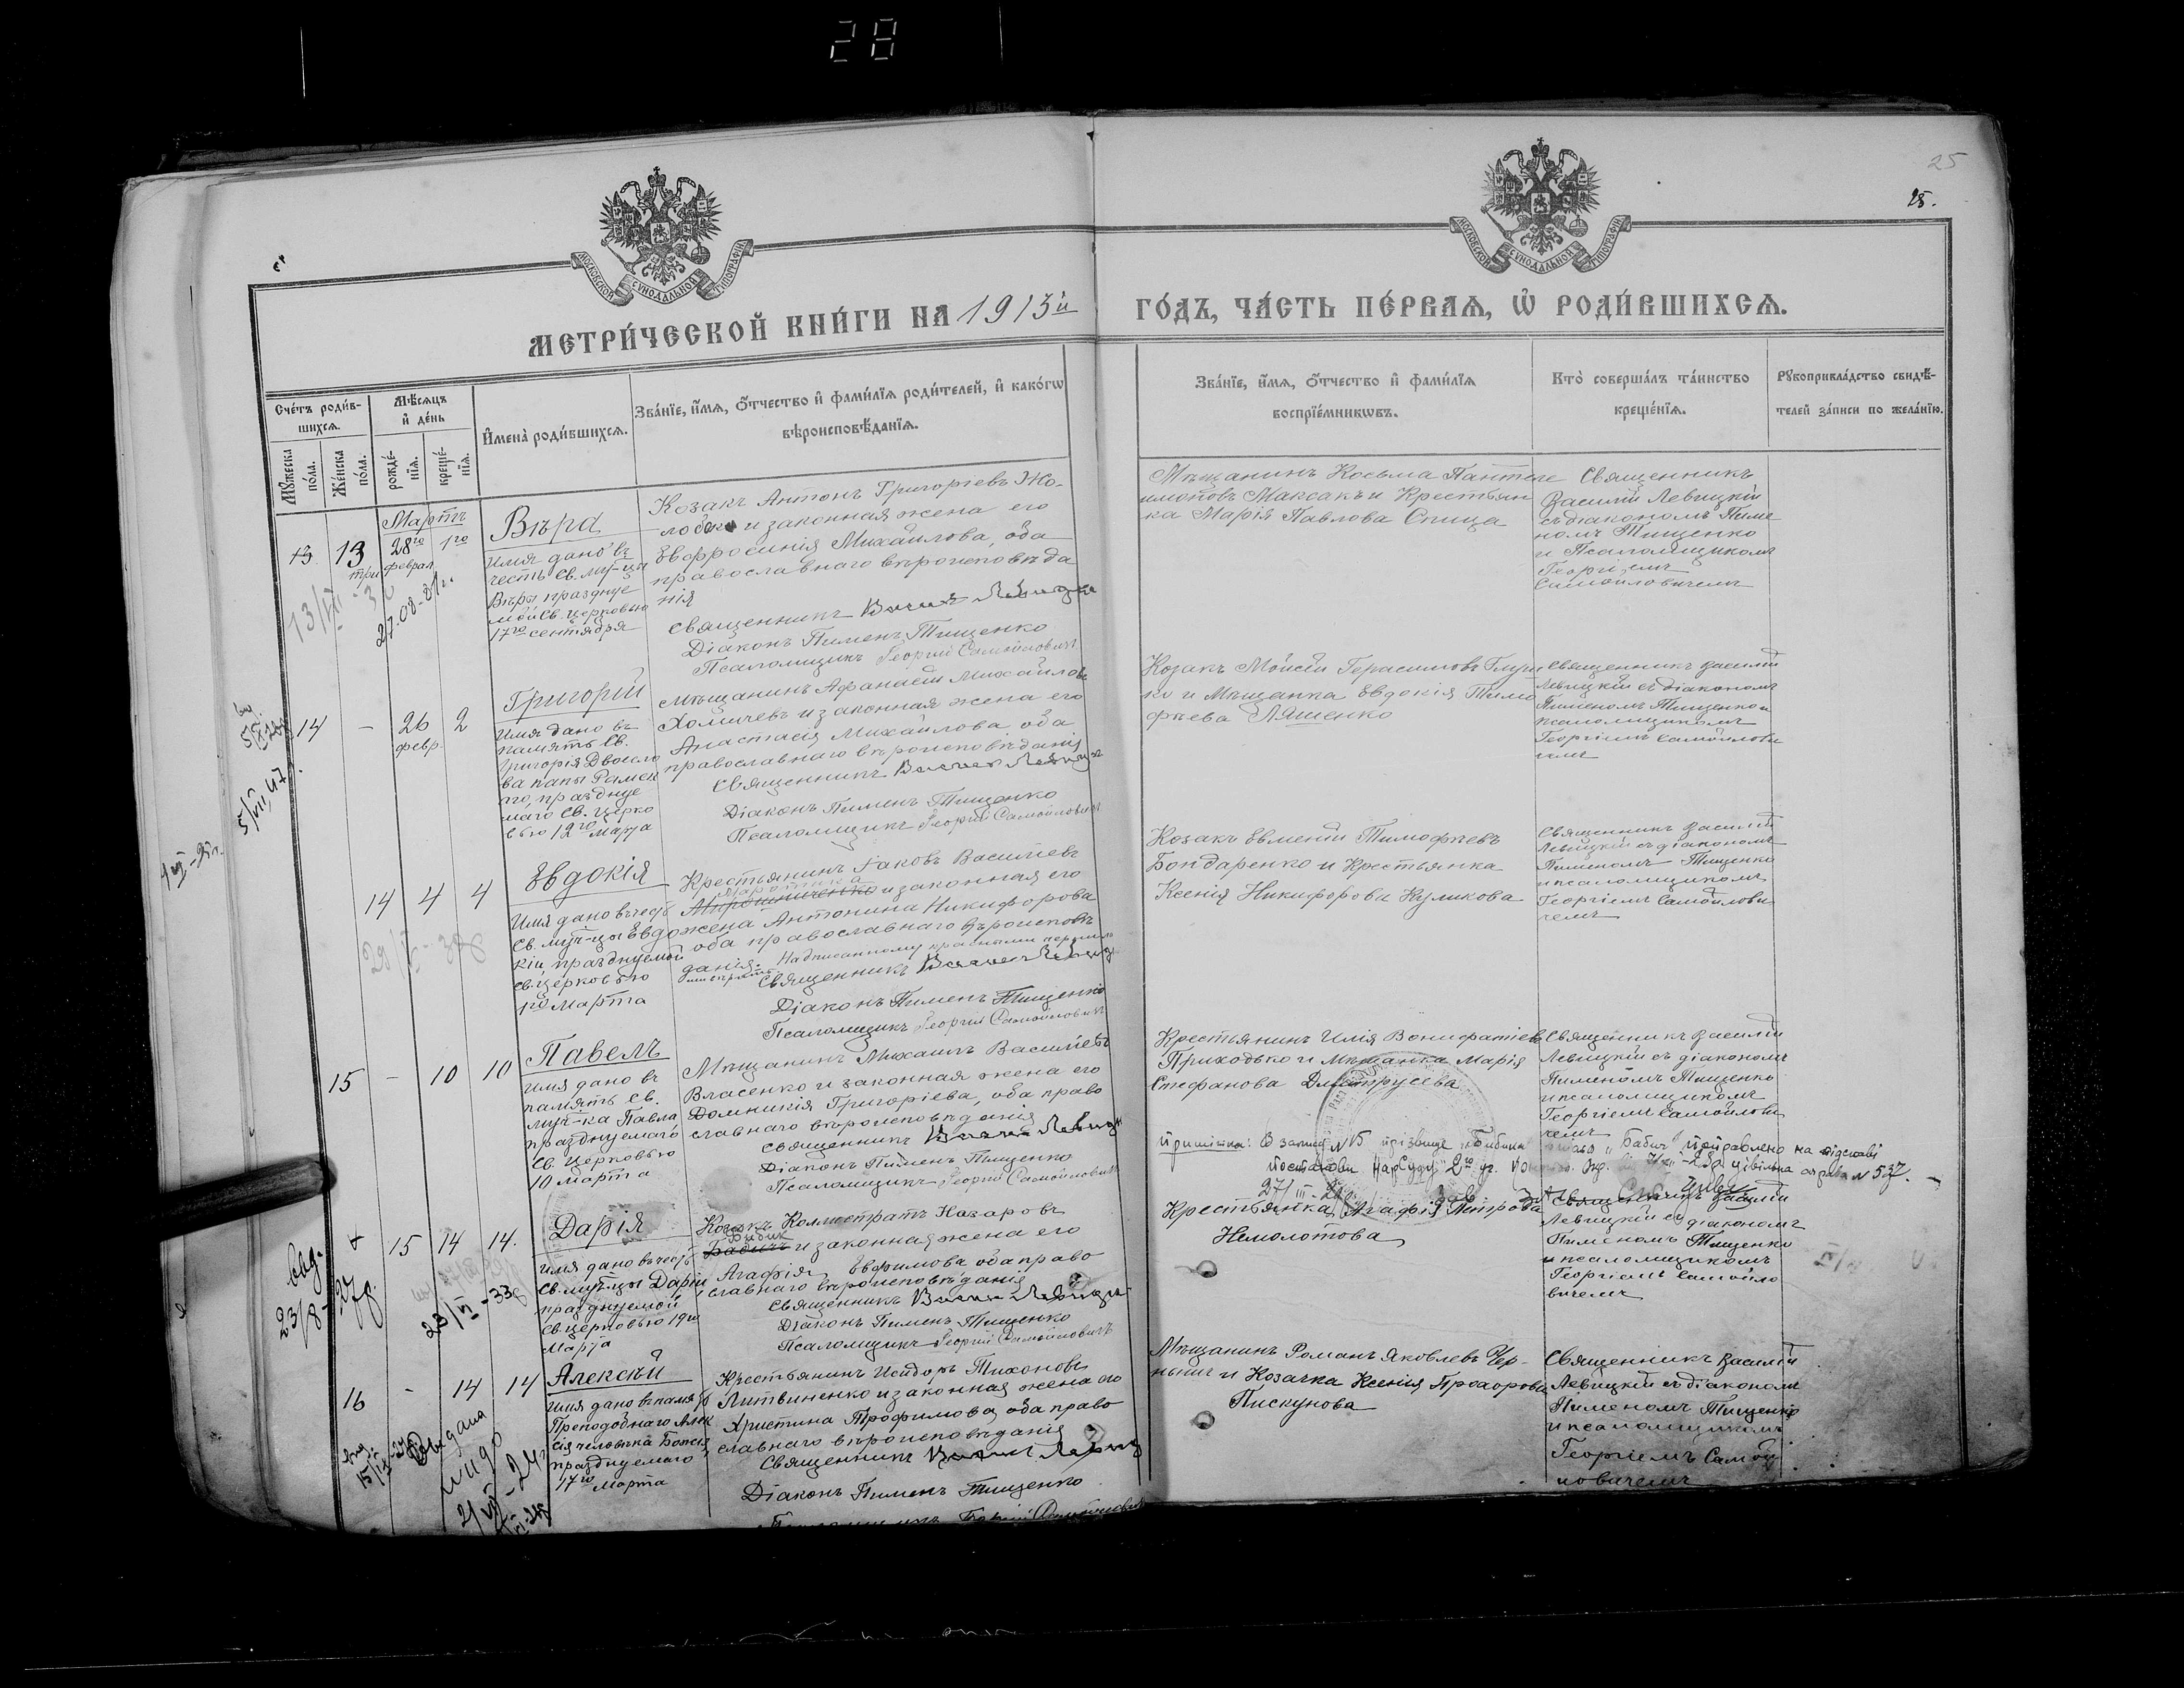 28
25
28.
МОСКОВСКОЙ СѴНОДАЛЬНОЙ ТИПОГРАФІИ
МОСКОВСКОЙ СѴНОДАЛЬНОЙ ТИПОГРАФІИ
МЕТРИ́ЧЕСКОЙ КНИ́ГИ НА 1913й ГО́ДЪ, ЧА́СТЬ ПЕ́РВАЯ, Ѡ҆ РОДИ́ВШИХСЯ.
Сче́тъ роди́в-
шихся.
Му́жеска по́ла.
Же́нска по́ла.
Мѣ́сяцъ
и҆ де́нь
рожде́-
нїя.
креще́-
нїя.
И҆мена̀ роди́вшихся.
Зва́нїе, и҆́мя, ѻ҆́тчество и҆ фами́лїя роди́телей, и҆ како́гѡ
вѣроисповѣ́данїя.
Зва́нїе, и҆́мя, ѻ҆́тчество и҆ фами́лїя
воспрїе́мникѡвъ.
Кто̀ соверша́лъ та́инство
креще́нїя.
Рꙋкоприкла́дство свидѣ́-
телей за́писи по жела́нїю.
Мартъ
13 13 28го 1го
три феврал
27-08-81г.
Вѣра
Имя дано въ
честь Св. му-цы
Вѣры праздну­е
мой Св. церковью
17го сентября
Козакъ Антонъ Григорьевъ Жо-
и законная жена его
Евфросинія Михаилова, оба
православнаго вѣроисповѣда
нія
Священникъ
Діаконъ Пименъ Тищенко
Псаломщикъ Георгій Самойловичъ
Мѣщанинъ Косьма Пантеле
имоновъ Максакъ и Крестьян
ка Марія Павлова Спица
Священникъ
Василій Левицкій
съ діакономъ Пиме
номъ Тищенко
и Псаломщикомъ
Георгіемъ
Самойловичемъ
14 - 26 2
февр.
5/VII, 47
Григорій
Имя дано въ
память Св.
Григорія Двоесло
ва папы Римск
аго, праздну­е
маго Св. Церко
вью 12го Марта
Мѣщанинъ Афанасій Михаиловъ
Хомичевъ и законная жена его
Анастасія Михаилова оба
православнаго вѣроисповѣданія
Священникъ
Діаконъ Пименъ Тищенко
Псаломщикъ Георгій Самойловичъ
Козакъ Мойсей Герасимовъ
и Мѣщанка Евдокія Тимо
феева Ляшенко
Священникъ Василій
Левицкій съ діакономъ
Пименомъ Тищенко и
псаломщикомъ
Георгіемъ Самойлови
чемъ
14 4 4
Евдокія
Имя дано въ честь
Св. муч-цы Евдо
кіи, празднуемой
Св. церковью
1го Марта
Крестьянинъ Іаковъ Васильевъ
Мирошниченко и законная его
жена Антонина Никифорова
оба православнаго вѣроисповѣ
данія.
Священникъ
Діаконъ Пименъ Тищенко
Псаломщикъ Георгій Самойловичъ
Козакъ Евменій Тимофѣевъ
Бондаренко и Крестьянка
Ксенія Никифорова Куликова
Священникъ Василій
Левицкій съ діакономъ
Пименомъ Тищенко
и псаломщикомъ
Георгіемъ Самойлови
чемъ
15 - 10 10
Павелъ
Имя дано въ
память Св.
муч-ка Павла
празднуемаго
Св. Церковью
10 Марта
Мѣщанинъ Михаилъ Васильевъ
Власенко и законная жена его
Домникія Григоріева, оба право
славнаго вѣроисповѣданія
Священникъ
Діаконъ Пименъ Тищенко
Псаломщикъ Георгій Самойловичъ
Крестьянинъ Илія Вонифатіевъ
Приходько и Мѣщанка Марія
Стефанова
Священникъ Василій
Левицкій съ діакономъ
Пименомъ Тищенко
и псаломщикомъ
Георгіемъ Самойлови
чемъ
Примітка: В запису №15 прізвище „Бибика „Бабич" поправлено на підставі
постанови НарСуду 2го цивільна справа №537.
15 14 14.
23/VI-33
23/8-27
Дарія
Имя дано въ честь
Св. муч-цы Даріи
празднуемой
Св. церковью 19го
Марта
Козакъ Каллистратъ Назаровъ
Бибик
Бабичъ и законная жена его
Агафія Евфимова оба право
славнаго вѣроисповѣданія
Священникъ
Діаконъ Пименъ Тищенко
Псаломщикъ Георгій Самойловичъ
Крестьянка Агафія Петрова
Немолотова
Священникъ Василій
Левицкій съ діакономъ
Пименомъ Тищенко
и псаломщикомъ
Георгіемъ Самойло
вичемъ
16 - 14 14
Алексѣй
Имя дано въ память
Преподобнаго Алек
сія человѣка Божія
празднуемаго
17го Марта
Крестьянинъ Исидоръ Тихоновъ
Литвиненко и законная жена его
Христина Трофимова, оба право
славнаго вѣроисповѣданія
Священникъ
Діаконъ Пименъ Тищенко
Мѣщанинъ Романъ Яковлевъ Чер-
нышъ и Козачка Ксенія Прохорова
Пискунова
Священникъ Василій
Левицкій съ діакономъ
Пименомъ Тищенко
и псаломщикомъ
Георгіемъ Самой
ловичемъ